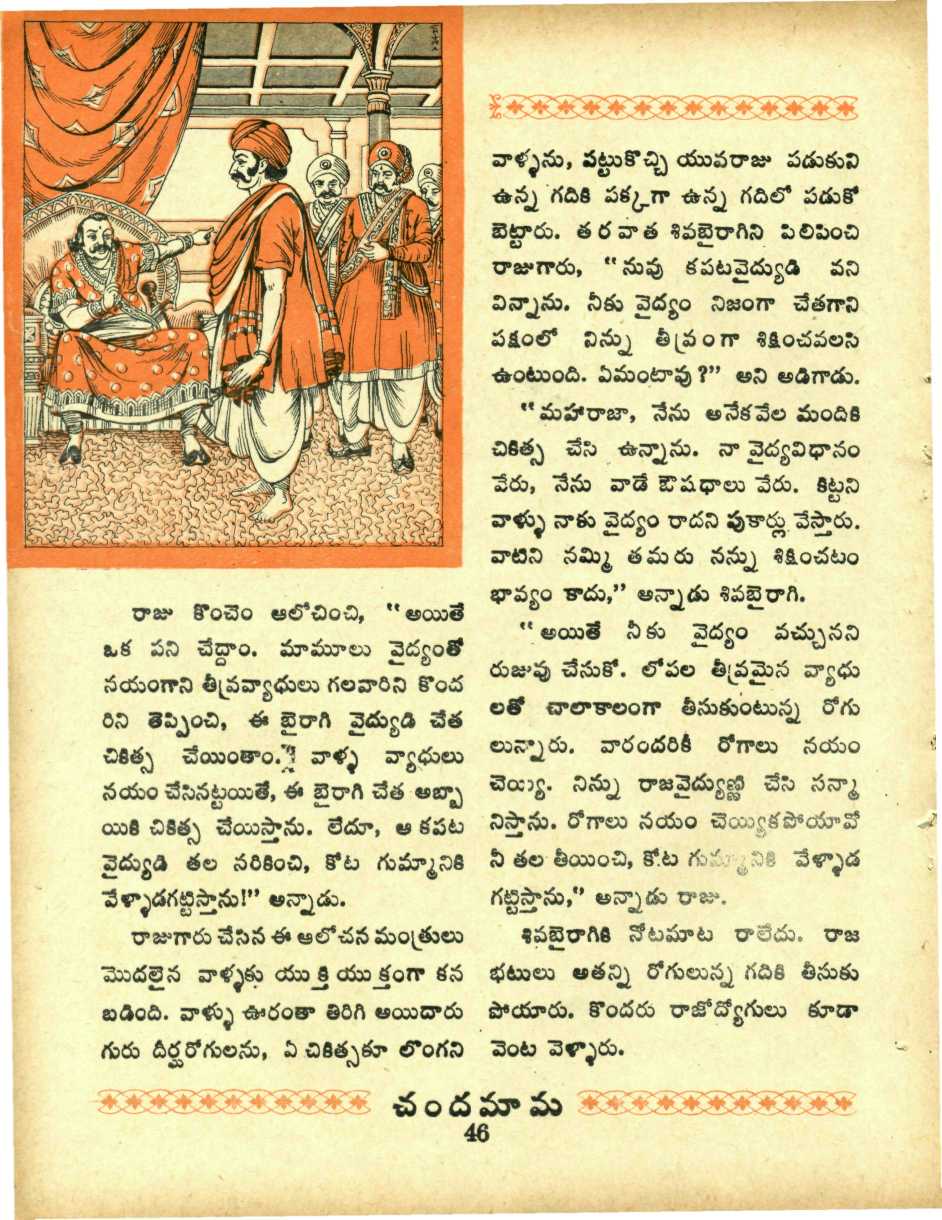 రాజు కొంచెం ఆలోచించి, “అయితే
ఒక పని చేద్దాం. మామూలు వైద్యంతో
నయంగాని తీవ్రవ్యాధులు గలవారిని కొంద
రిని తెప్పించి, ఈ బైరాగి వైద్యుడి చేత
చికిత్స చేయింతాం. వాళ్ళ వ్యాధులు
నయం చేసినట్టయితే, ఈ బైరాగి చేత అబ్బా
యికి చికిత్స చేయిస్తాను. లేదూ, ఆ కపట
వైద్యుడి తల నరికించి, కోట గుమ్మానికి
వేళ్ళాడగట్టిస్తాను!” అన్నాడు.
రాజుగారు చేసిన ఈ ఆలోచన మంత్రులు
మొదలైన వాళ్ళకు యుక్తియుక్తంగా కన
బడింది. వాళ్ళు ఊరంతా తిరిగి అయిదారు
గురు దీర్ఘరోగులను, ఏ చికిత్సకూ లొంగని
వాళ్ళను, పట్టుకొచ్చి యువరాజు పడుకుని
ఉన్న గదికి పక్కగా ఉన్న గదిలో పడుకో
బెట్టారు. తరవాత శివబైరాగిని పిలిపించి
రాజుగారు, “నువు కపటవైద్యుడి వని
విన్నాను. నీకు వైద్యం నిజంగా చేతగాని
పక్షంలో నిన్ను తీవ్రంగా శిక్షించవలసి
ఉంటుంది. ఏమంటావు?” అని అడిగాడు.
“మహారాజా, నేను అనేకవేల మందికి
చికిత్స చేసి ఉన్నాను. నా వైద్యవిధానం
వేరు, నేను వాడే ఔషధాలు వేరు. కిట్టని
వాళ్ళు నాకు వైద్యం రాదని పుకార్లు వేస్తారు.
వాటిని నమ్మి తమరు నన్ను శిక్షించటం
భావ్యం కాదు,” అన్నాడు శివబైరాగి.
“అయితే నీకు వైద్యం వచ్చునని
రుజువు చేసుకో. లోపల తీవ్రమైన వ్యాధు
లతో చాలాకాలంగా తీసుకుంటున్న రోగు
లున్నారు. వారందరికీ రోగాలు నయం
చెయ్యి. నిన్ను రాజవైద్యుణ్ణి చేసి సన్మా
నిస్తాను. రోగాలు నయం చెయ్యికపోయావో
నీ తల తీయించి, కోట గుమ్మానికి వేళ్ళాడ
గట్టిస్తాను,” అన్నాడు రాజు.
శివబైరాగికి నోటమాట రాలేదు. రాజ
భటులు అతన్ని రోగులున్న గదికి తీసుకు
పోయారు. కొందరు రాజోద్యోగులు కూడా
వెంట వెళ్ళారు.
చందమామ
46